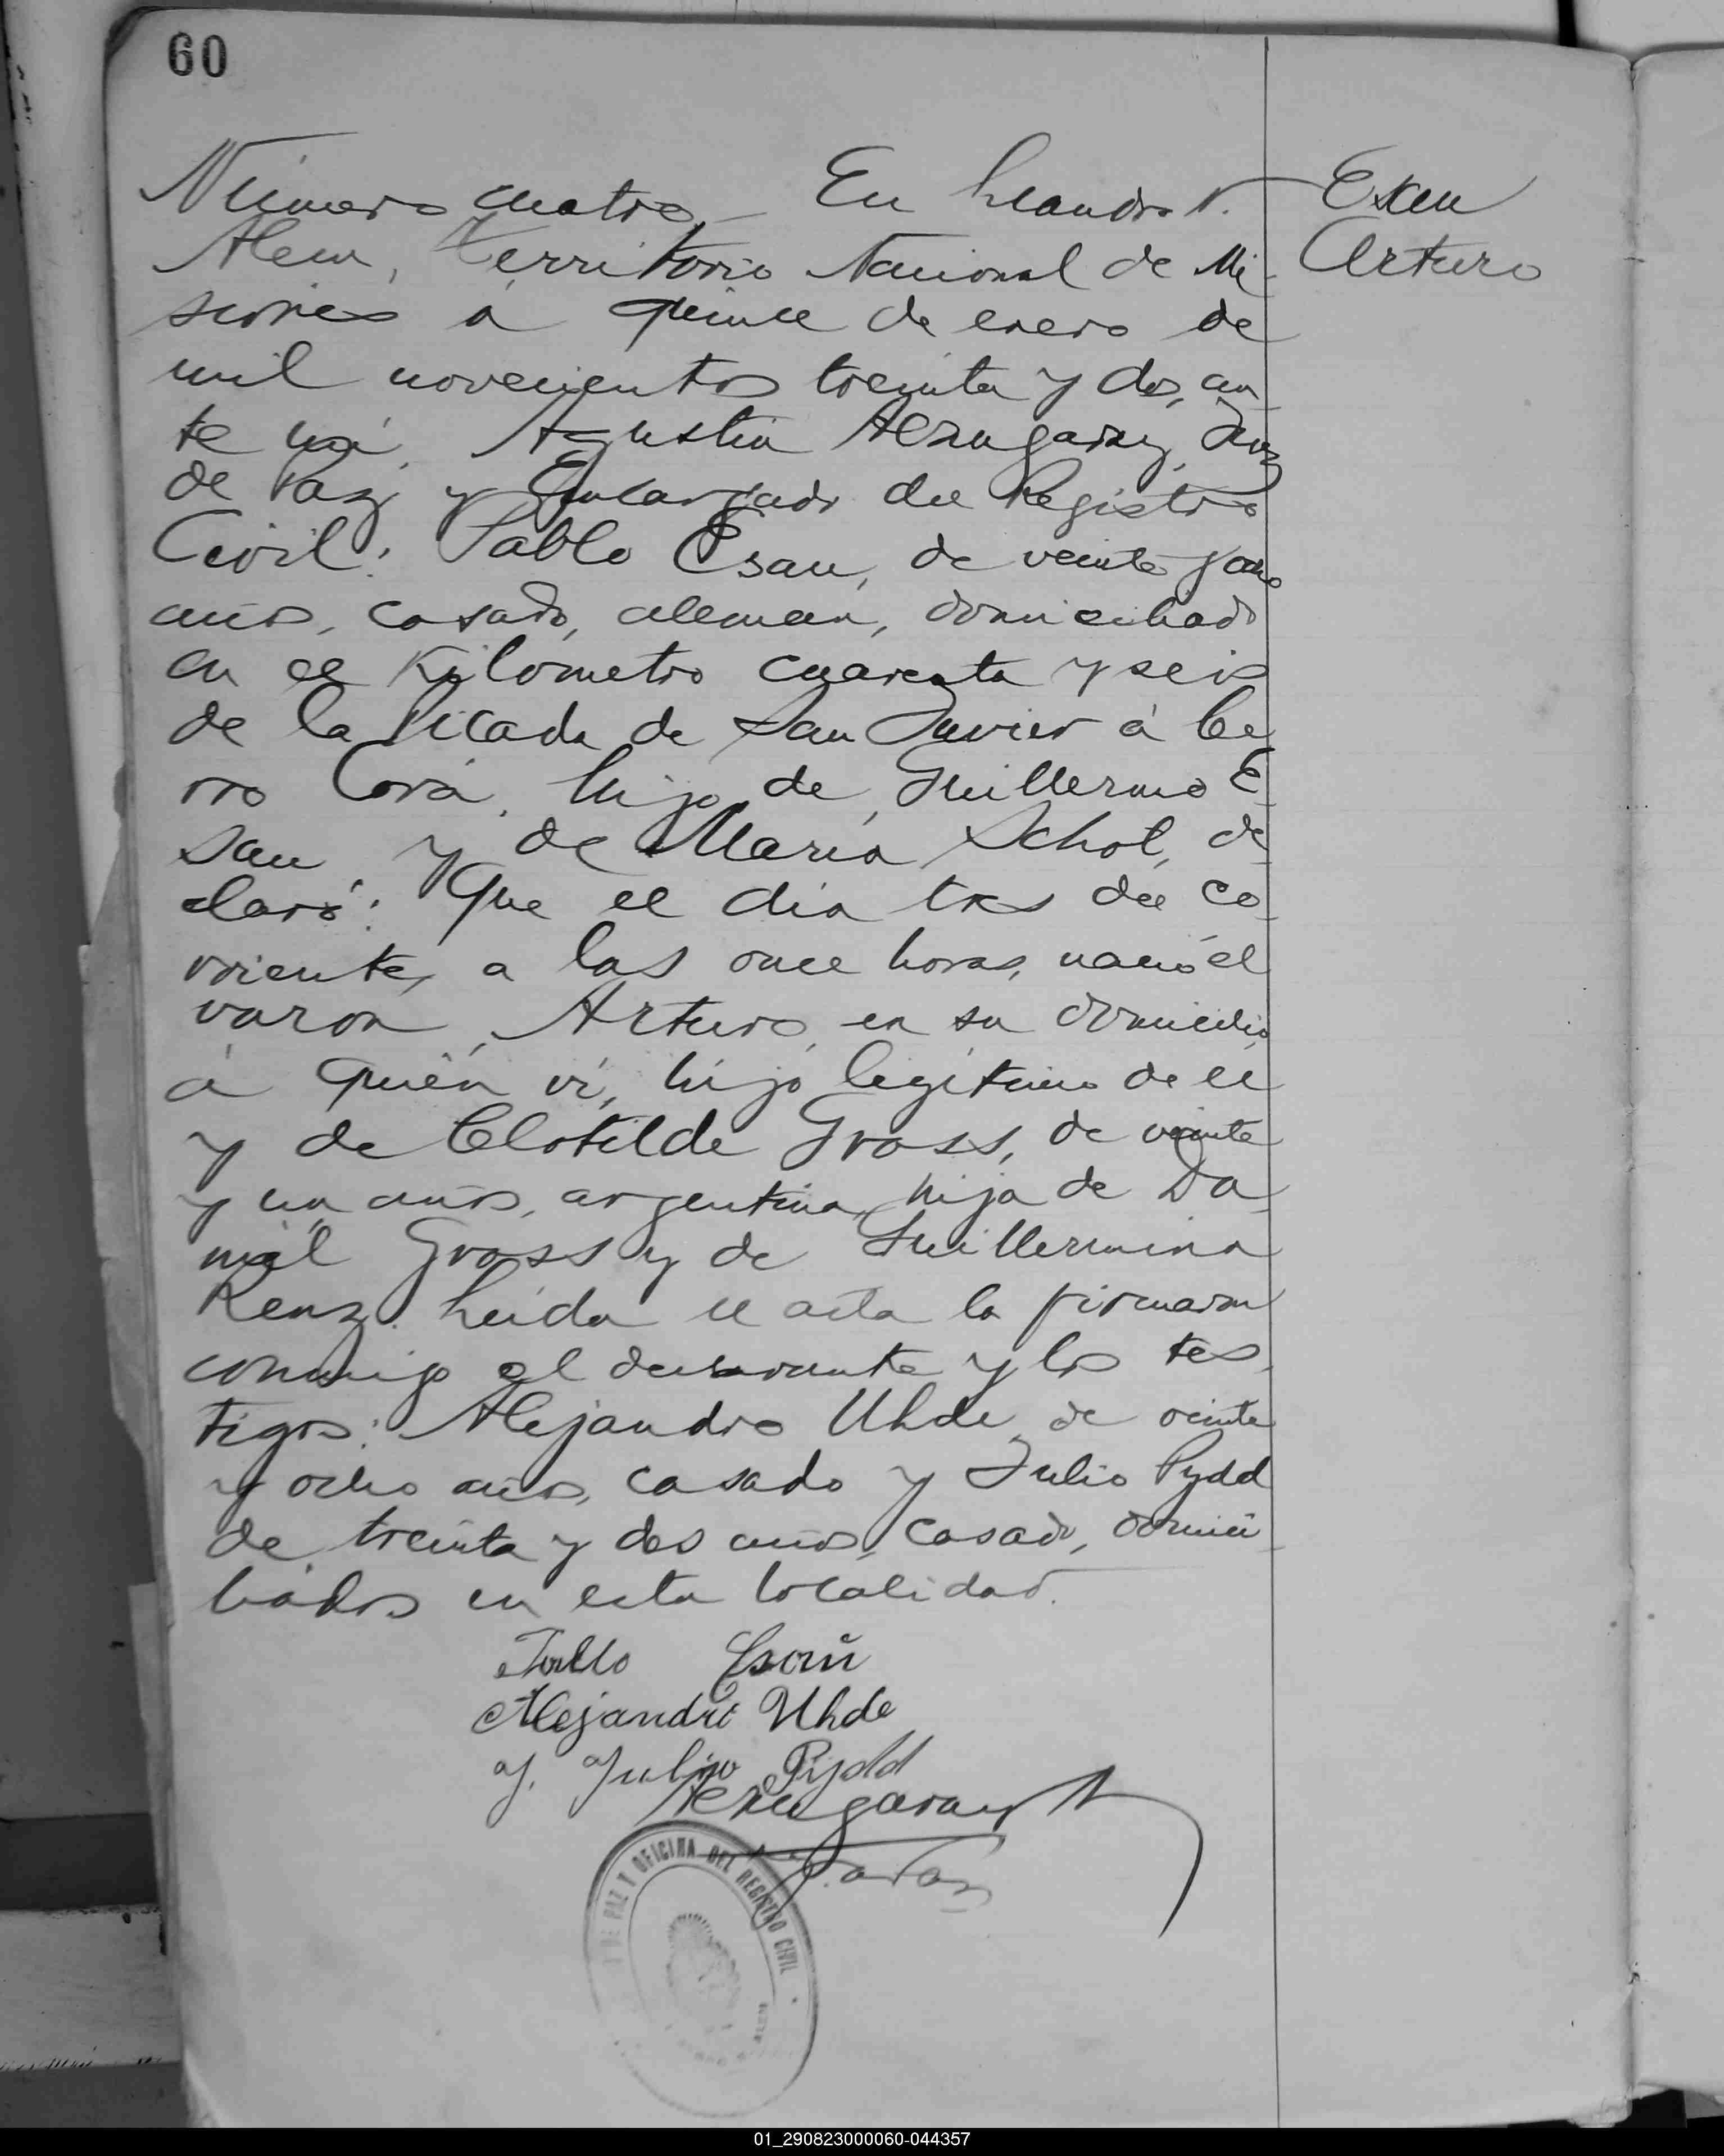 60
Número cuatro.– En Leandro N.
Alem, Territorio Nacional de Mi-
siones á quince de enero de
mil novecientos treinta y dos, an-
te mí, Agustín Alzugaray, Juez
de Paz y Encargado del Registro
Civil: Pablo Esau, de veinte y ocho
años, casado, aleman, domiciliado
en el Kilometro cuarenta y seis
de la Picada de San Javier á Ce-
rro Corá, hijo de Guillermo E-
sau y de María Schol, de-
claró: Que el día tres del co-
rriente, a las once horas, nació el
varon Arturo, en su domicilio
á quién ví, hijo legítimo de él
y de Clotilde Gross, de veinte
y un años, argentina, hija de Da-
niel Gross y de Guillermina
Renz. Leída el acta la firmaron
conmigo el declarante y los tes-
tigos: Alejandro Uhde, de veinte
y ocho años, casado y Julio Pydd
de treinta y dos años, casado, domici-
liados en esta localidad.
Esau
Arturo
Pablo Esaŭ
Alejandro Uhde
J. Julijo Pijdd
Alzugaray
DE PAZ Y OFICINA DEL REGISTRO CIVIL
01_290823000060-044357